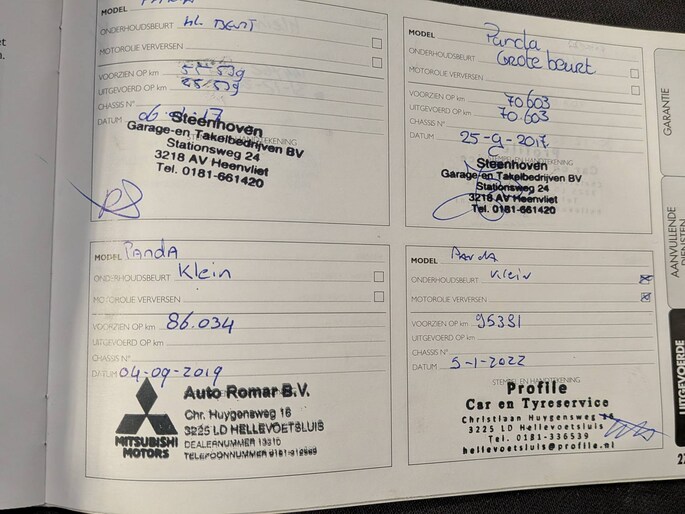 MODEL
ONDERHOUDSBEURT kl. BEURT
MOTOROLIE VERVERSEN
VOORZIEN OP km
UITGEVOERD OP km
CHASSIS N°
DATUM
Steenhoven
Garage-en Takelbedrijven BV
Stationsweg 24
3218 AV Heenvliet
Tel. 0181-661420
MODEL Panda
ONDERHOUDSBEURT Grote beurt
MOTOROLIE VERVERSEN
VOORZIEN OP km 70603
UITGEVOERD OP km 70.603
CHASSIS N°
DATUM 25-9-2017
STEMPEL EN HANDTEKENING
Steenhoven
Garage-en Takelbedrijven BV
Stationsweg 24
3218 AV Heenvliet
Tel. 0181-661420
MODEL PANDA
ONDERHOUDSBEURT Klein
MOTOROLIE VERVERSEN
VOORZIEN OP km 86.034
UITGEVOERD OP km
CHASSIS N°
DATUM 04-09-2019
MITSUBISHI
MOTORS
Auto Romar B.V.
Chr. Huygensweg 16
3225 LD HELLEVOETSLUIS
DEALERNUMMER
TELEFOONNUMMER
MODEL PANDA
ONDERHOUDSBEURT Klein
MOTOROLIE VERVERSEN
VOORZIEN OP km 95381
UITGEVOERD OP km
CHASSIS N°
DATUM 5-1-2022
STEMPEL EN HANDTEKENING
Profile
Car en Tyreservice
Christiaan Huygensweg
3225 LD Hellevoetsluis
Tel. 0181-336539
hellevoetsluis@profile.nl
GARANTIE
AANVULLENDE
DIENSTEN
UITGEVOERDE